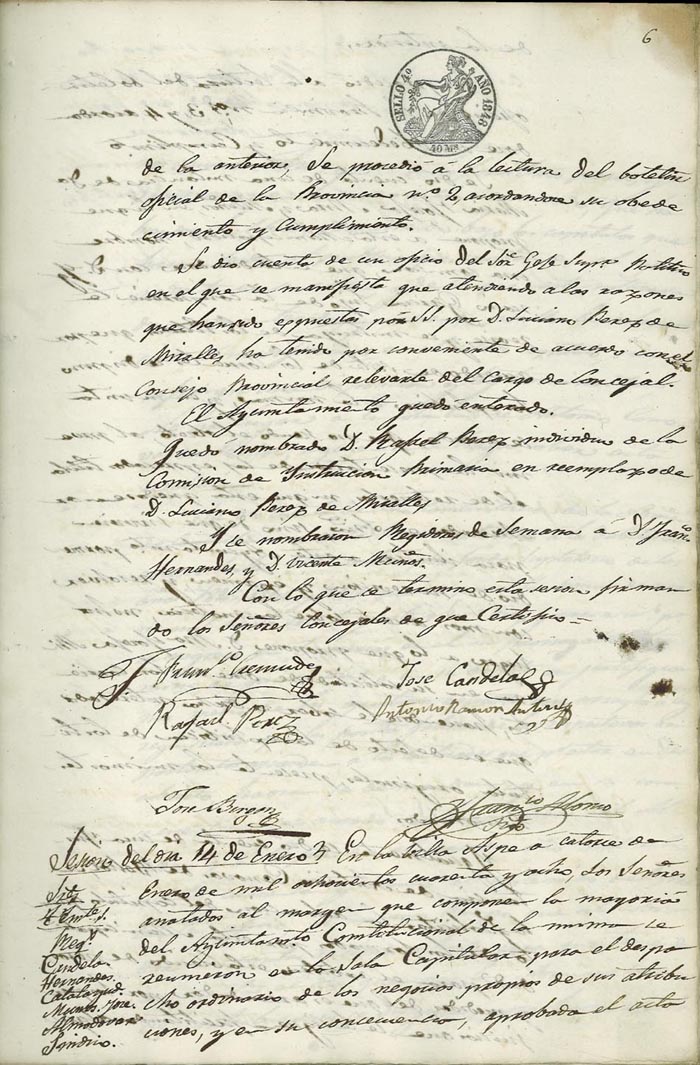 6
SELLO 4º AÑO 1848
40 Ms
de la anterior, Se procedió á la lectura del boletin
oficial de la Provincia n.º 2, acordandose su obede
cimiento y cumplimiento.
Se dio cuenta de un oficio del Sor. Gefe Supr. Politico
en el que se manifiesta que atendiendo a las razones
que han sido expuestas por D. Luciano Perez de
Miralles, ha tenido por conveniente de acuerdo con el
Consejo Provincial relevarle del cargo de Concejal.
El Ayuntamiento quedó enterado.
Quedó nombrado D. Rafael Perez individuo de la
Comision de Instrucion Primaria en reemplazo de
D. Luciano Perez de Miralles
Y se nombraron Regidores de Semana á D. Franco.
Hernandes, y D. Vicente Muños.
Con lo que se termino esta sesion firman
do los Señores Concejales de que Certifico=
Jose Candela
Rafael Perez
Antonio Ramon
Jose Burgos
Franco Alonso
Sesion del dia 14 de Enero } En la Villa Aspe a catorce de
Enero de mil ochocientos cuarenta y ocho, Los Señores
anatados al margen que componen la mayoria
del Ayuntamto Constitucional de la misma se
reunieron en la Sala Capitular para el despa
cho ordinario de los negocios propios de sus atribu
ciones, y en su concecuencia, aprobada el acta
Sres
Regs
Candela
Hernandes
Calatayud
Munos. Jose
Almodovar
Sindico